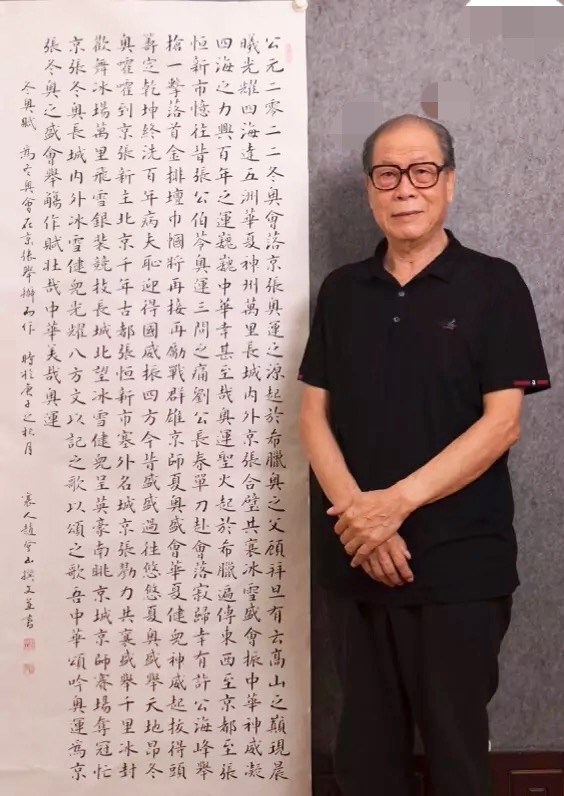 公元二零二二冬奧會落京張奧運之源起於希臘奧之父顧拜旦有云高山之巔現晨
曦光耀四海達五洲華夏神州萬里長城內外京張合璧共襄冰雪盛會振中華神威凝
四海之力興百年之運巍巍中華幸甚至哉奧運聖火起於希臘遍傳東西至京都至張
恒新市憶往昔張公伯苓奧運三問之痛劉公長春單刀赴會落寂歸幸有許公海峰舉
搶一擊落首金排壇巾幗將再接再勵戰群雄京師夏奧盛會華夏健兒神威起拔得頭
籌定乾坤終洗百年病夫恥迎得國威振四方今昔盛盛過往悠悠夏奧盛舉天地昂冬
奧嚯嚯到京張新主北京千年古都張恒新市塞外名城京張勠力共襄盛舉千里冰封
歡舞冰場萬里飛雪銀裝競技長城北望冰雪健兒呈英豪南眺京城京師賽場奪冠忙
京張冬奧長城內外冰雪健兒光耀八方文以記之歌以頌之歌吾中華頌吟奧運為京
張冬奧之盛會舉觴作賦壯哉中華美哉奧運
冬奧賦 為冬奧會在京張舉辦而作 時於庚子之秋月 襄人趙雲山撰文並書